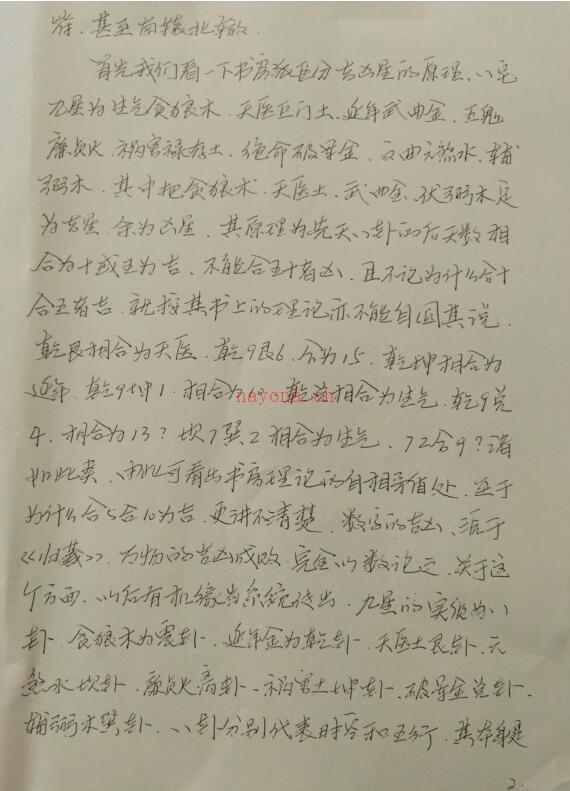 符、甚至南辕北辙.
首先我们看一下书房派区分吉凶星的原理、八宅
九星为生气贪狼木、天医巨门土、延年武曲金、五鬼
廉贞火、祸害禄存土、绝命破军金、文曲六煞水、辅
弼木、其中把贪狼木、天医土、武曲金、伏弼木定
为吉星、余为凶星、其原理为先天八卦的后天数相
合为十或五为吉、不能合五十者凶、且不论为什么合十
合五者吉、就按其书上的理论亦不能自圆其说、
乾艮相合为天医、乾9艮6、合为15、乾坤相合为
延年、乾9坤1、相合为10、乾兑相合为生气、乾9兑
4、相合为13？坎7巽2相合为生气、72合9？诸
如此类、由此可看出书房理论的自相矛盾处、至于
为什么合5合10为吉、更讲不清楚、数字的吉凶、源于
《归藏》、万物的吉凶成败、完全以数论定、关于这
个方面、以后有机缘当系统传出、九星的实质为八
卦、贪狼木为震卦、延年金为乾卦、天医土艮卦、六
煞水坎卦、廉贞火离卦、祸害土坤卦、破军金兑卦、
辅弼木巽卦、八卦分别代表时空和五行、其本身是
2.
nayona.cn